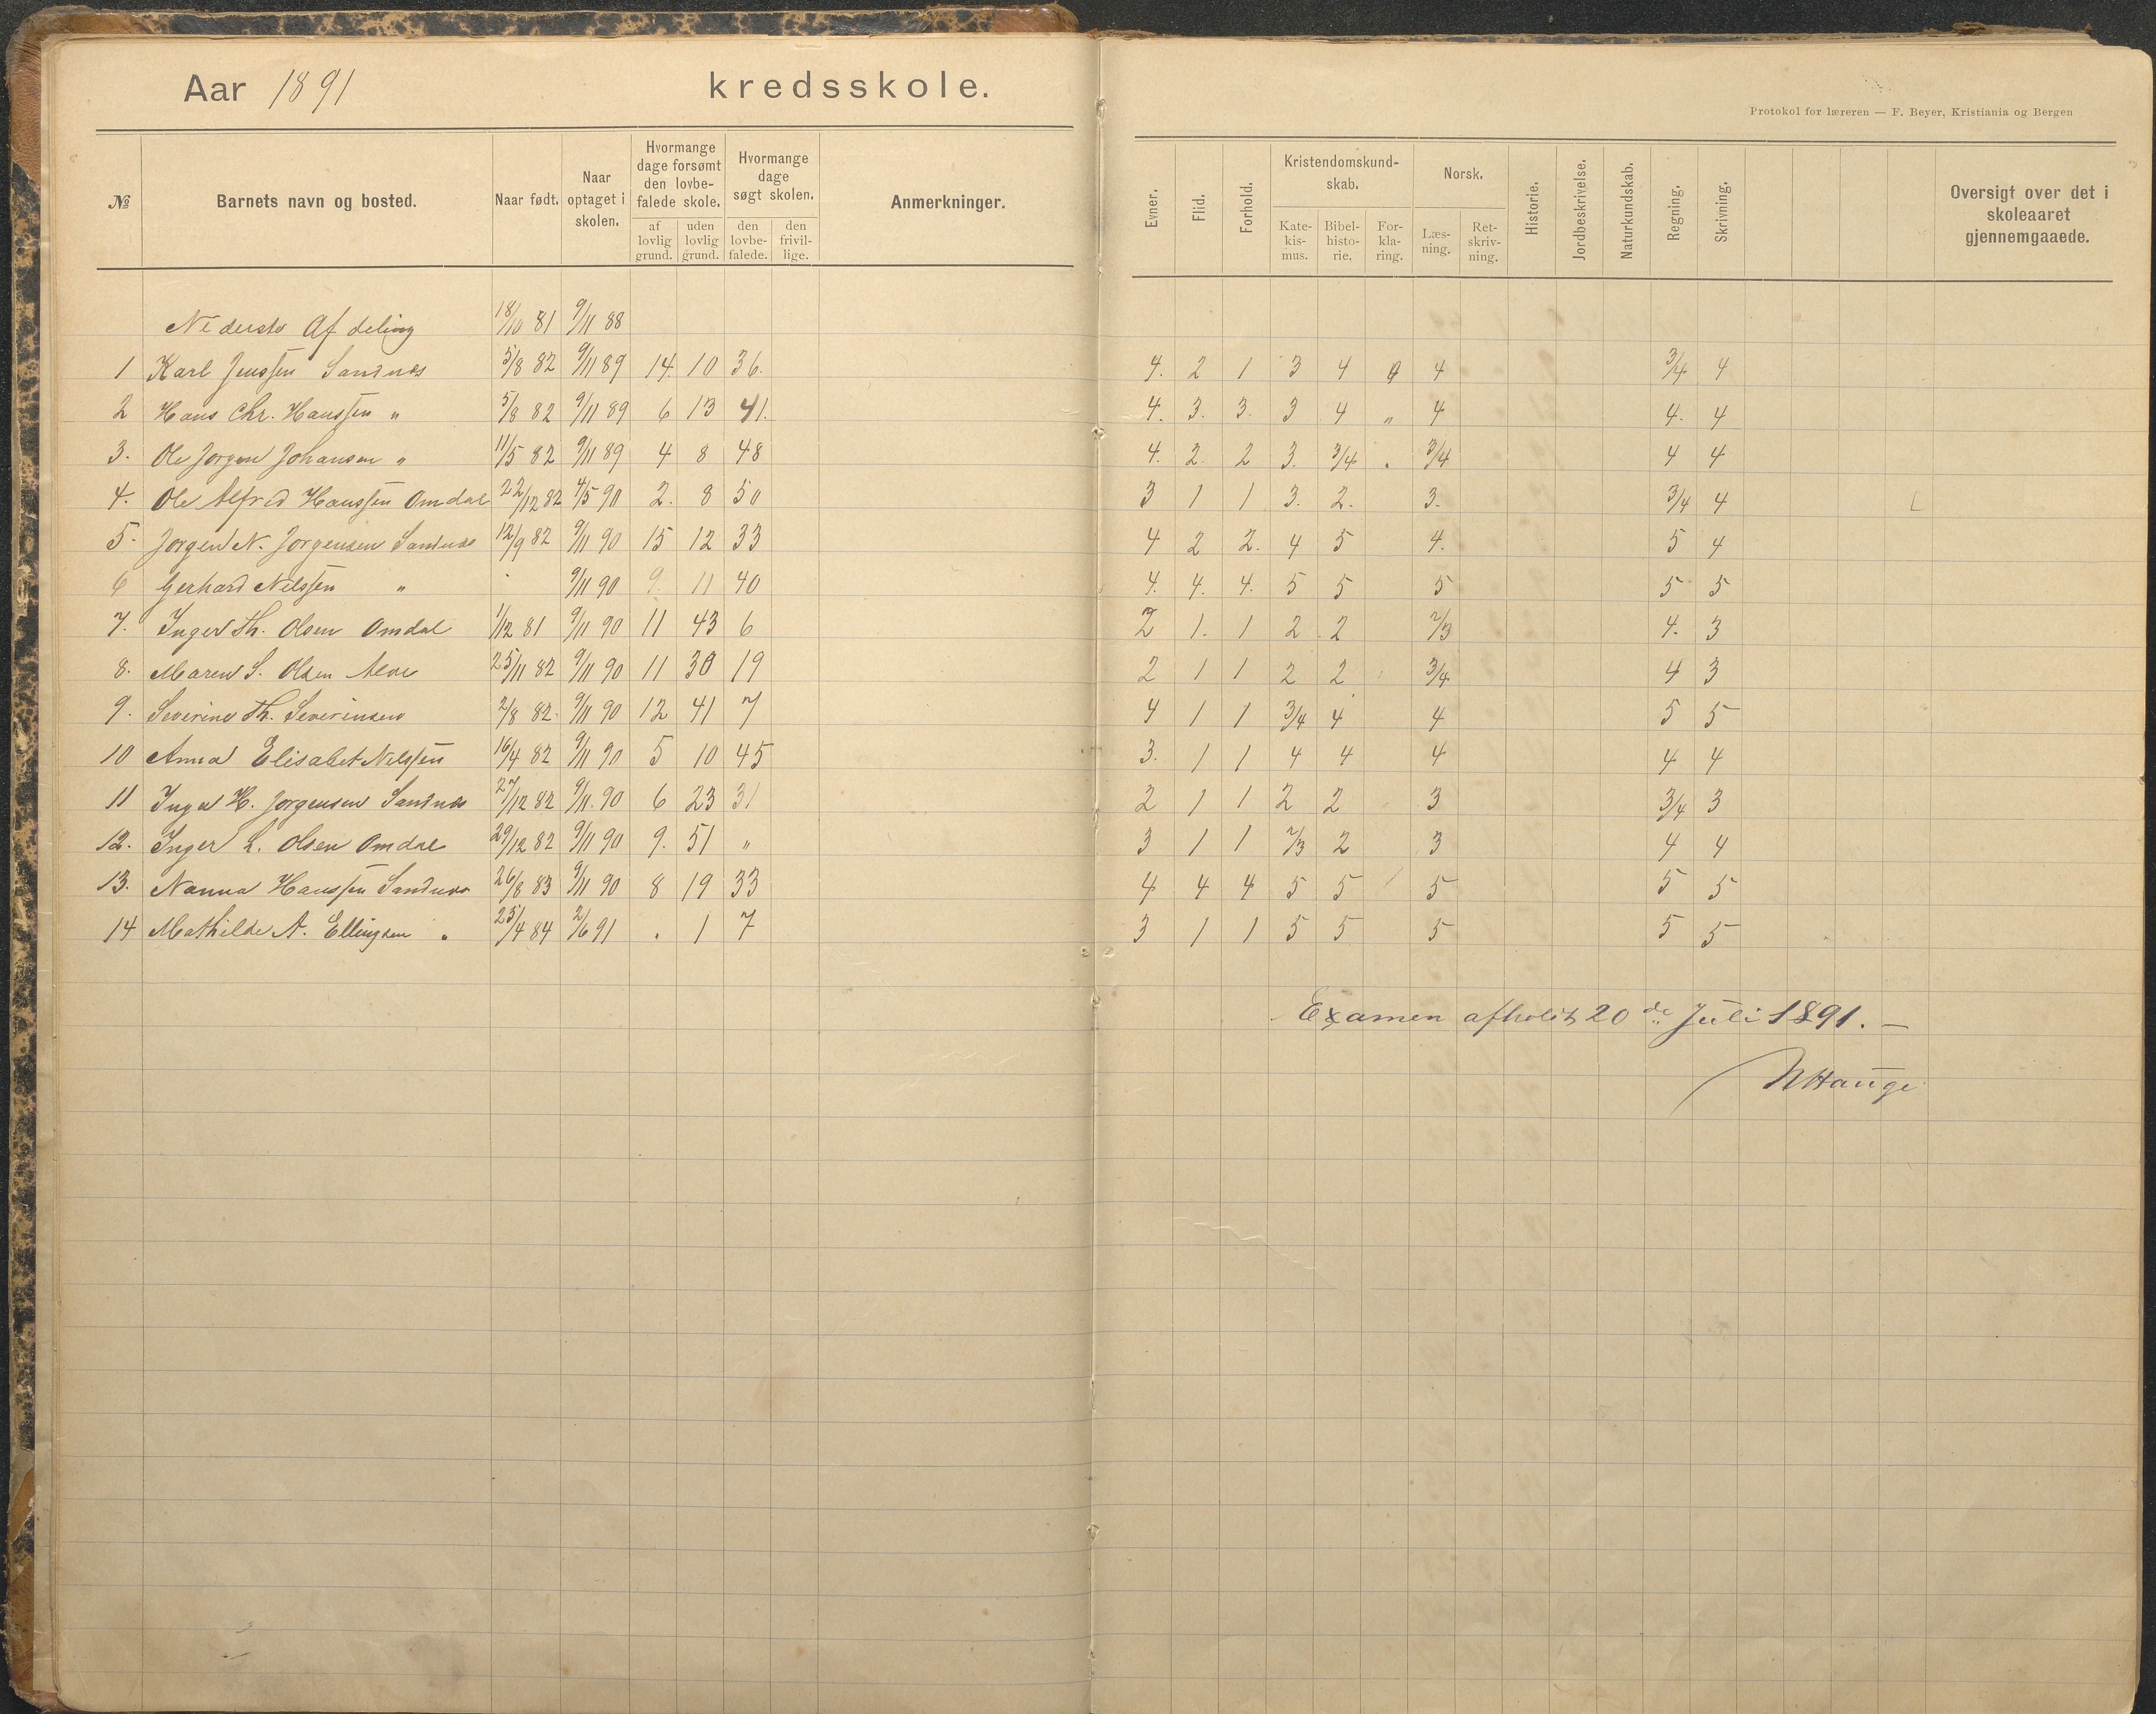 Aar 1891 kredsskole.
Protokol for læreren — F. Beyer, Kristiania og Bergen
№ Barnets navn og bosted. Naar født. Naar optaget i skolen. Hvormange dage forsømt den lovbefalede skole. af lovlig grund. uden lovlig grund. Hvormange dage søgt skolen. den lovbefalede. den frivillige. Anmerkninger. Evner. Flid. Forhold. Kristendomskundskab. Katekismus. Bibelhistorie. Forklaring. Norsk. Læsning. Retskrivning. Historie. Jordbeskrivelse. Naturkundskab. Regning. Skrivning. Oversigt over det i skoleaaret gjennemgaaede.
Nederste Afdeling 18/10 81 9/11 88
1 Karl Jenssen Sandnes 5/8 82 9/11 89 14. 10 36. 4. 2 1 3 4 4 3/4 4
2 Hans Chr. Hanssen " 5/8 82 9/11 89 6 13 41. 4. 3. 3. 3 4 " 4 4. 4
3. Ole Jorgen Johansen " 11/5 82 9/11 89 4 8 48 4. 2. 2 3. 3/4 . 3/4 4 4
4. Ole Alfred Hanssen Omdal 22/12 82 4/5 90 2. 8 50 3 1 1 3. 2. 3. 3/4 4
5. Jorgen N. Jorgensen Sandnes 12/9 82 9/11 90 15 12 33 4 2 2. 4 5 4. 5 4
6 Gerhard Nilssen " 9/11 90 9. 11 40 4. 4. 4. 5 5 5 5 5
7. Inger Th. Olsen Omdal 1/12 81 9/11 90 11 43 6 2 1. 1 2 2 2/3 4. 3
8. Maren S. Olsen 25/11 82 9/11 90 11 30 19 2 1 1 2 2 3/4 4 3
9. Severine Th. Severinsen 2/8 82. 9/11 90 12 41 7 4 1 1 3/4 4 4 5 5
10 Anna Elisabet Nilssen 16/4 82 9/11 90 5 10 45 3. 1 1 4 4 4 4 4
11 Inger H. Jorgensen Sandnes 27/12 82 9/11. 90 6 23 31 2 1 1 2 2 3 3/4 3
12. Inger L. Olsen Omdal 29/12 82 9/11 90 9. 51 " 3 1 1 2/3 2 3 4 4
13. Nanna Hanssen Sandnes 26/8 83 9/11 90 8 19 33 4 4 4 5 5 5 5 5
14 Mathilde A. Ellingsen " 25/4 84 2/6 91 . 1 7 3 1 1 5 5 5 5 5
Examen afholdt 20de Juli 1891. —
NHauge